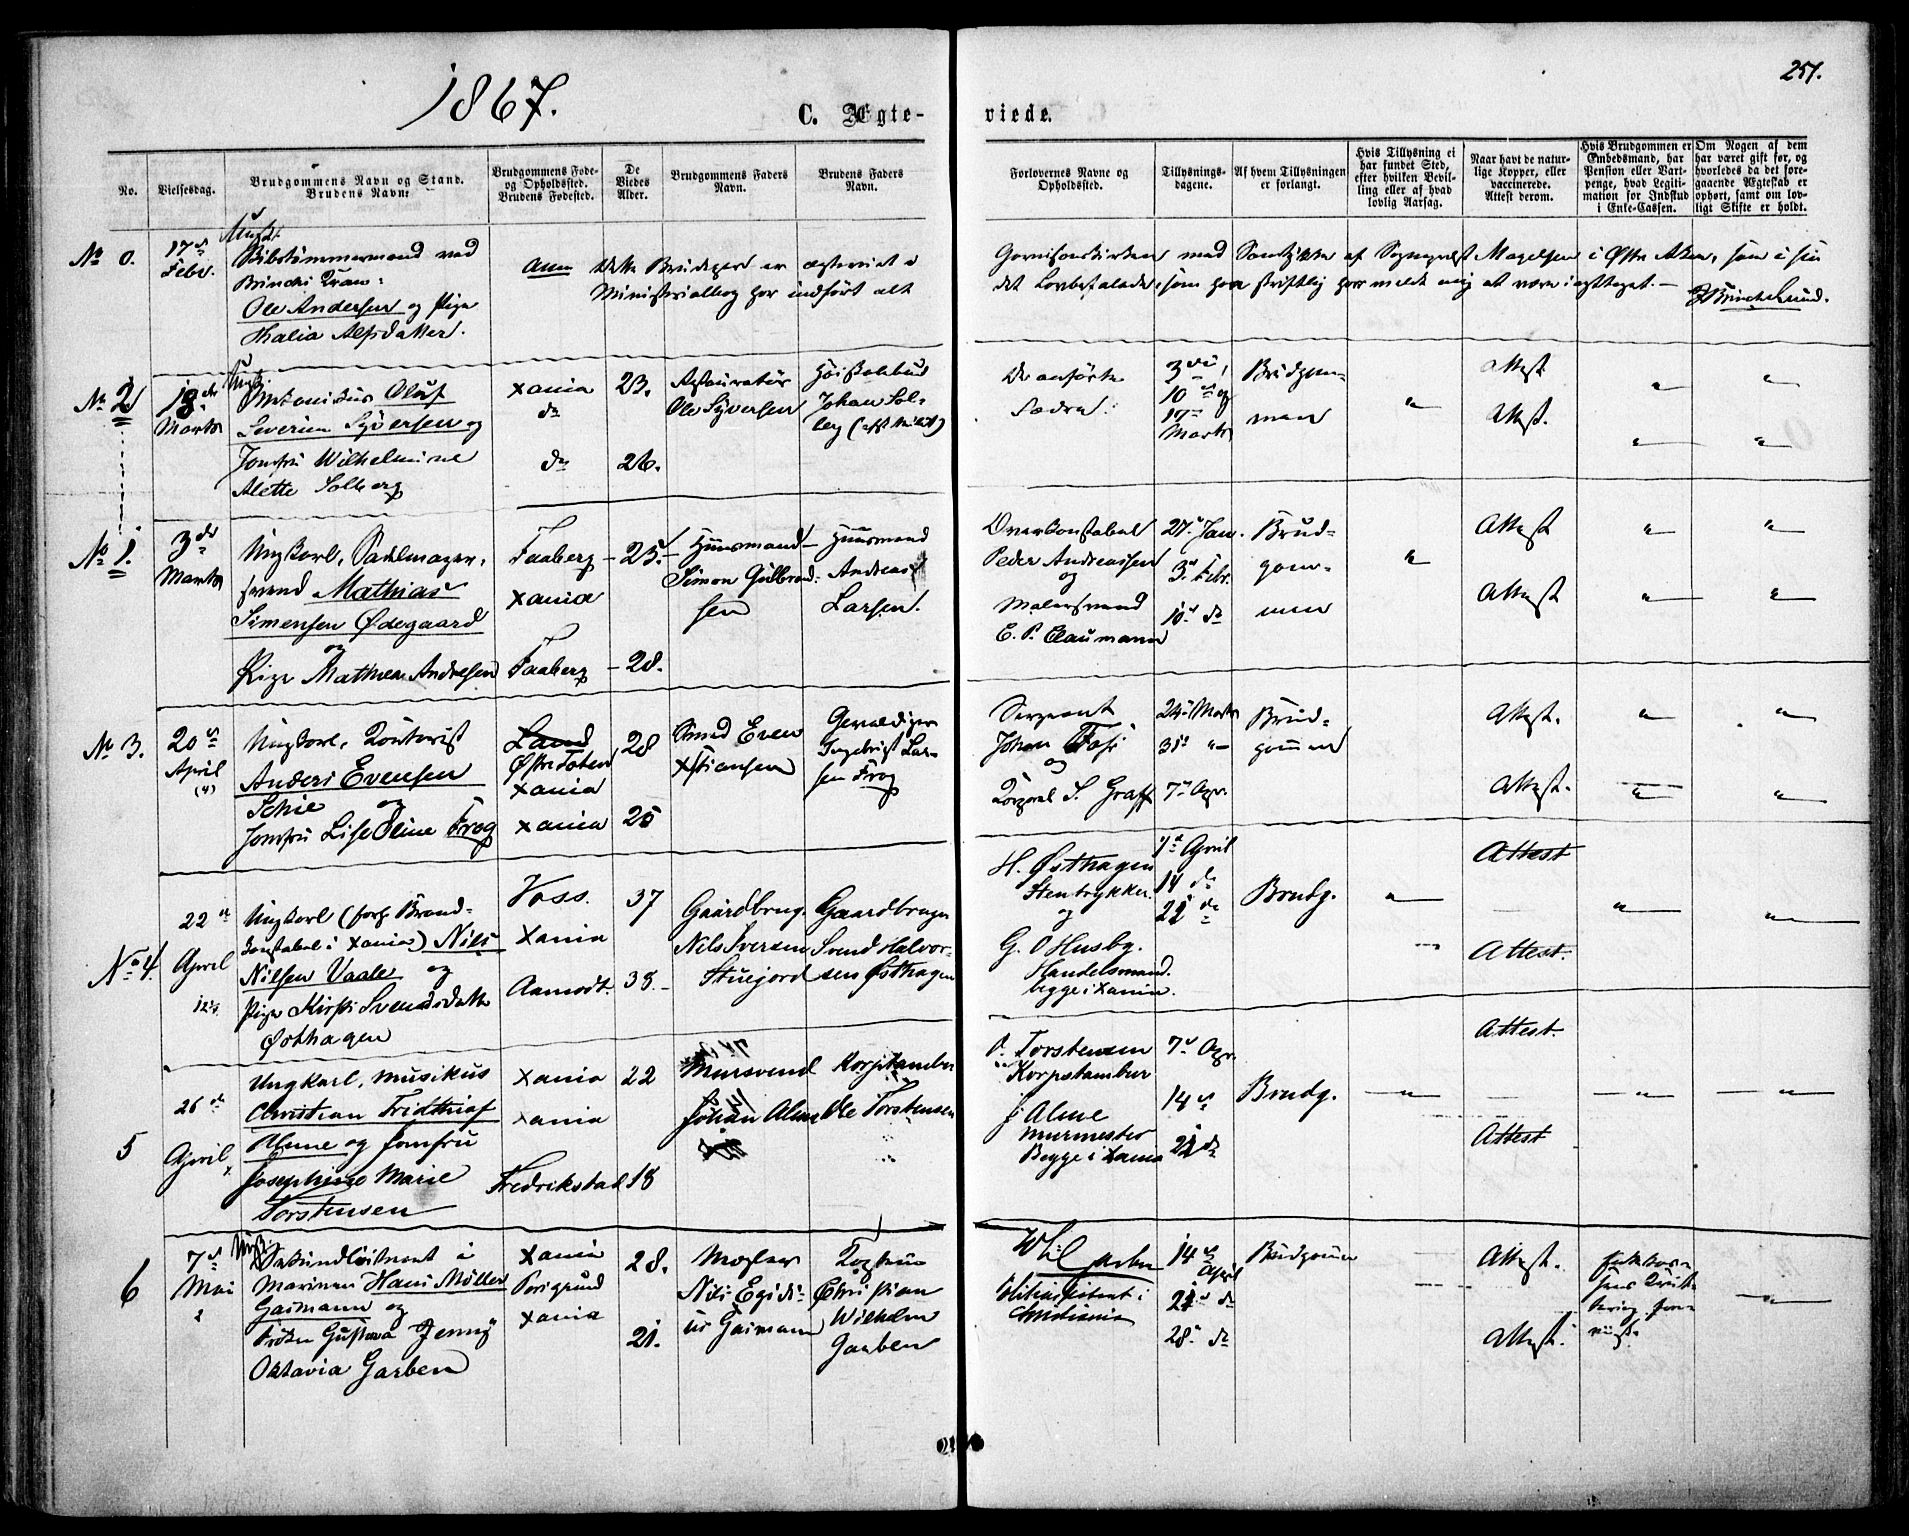 1867.
251.
C. Ægte-
viede.
No.
Vielsesdag.
Brudgommens Navn og Stand.
Brudens Navn.
Brudgommens Føde-
og Opholdssted.
Brudens Fødested.
De
Viedes
Alder.
Brudgommens Faders
Navn.
Brudens Faders
Navn.
Forlovernes Navne og
Opholdssted.
Tillysnings-
dagene.
Af hvem Tillysningen
er forlangt.
Hvis Tillysning ei
har fundet Sted,
efter hvilken Bevil-
ling eller af hvad
lovlig Aarsag.
Naar havt de natur-
lige Kopper, eller
vaccinerede.
Attest derom.
Hvis Brudgommen er
Embedsmand, har
Pension eller Vart-
penge, hvad Legiti-
mation for Indskud
i Enke-Cassen.
Om Nogen af dem
har været gift før, og
hvorledes da det fore-
gaaende Ægteskab er
ophørt, samt om lov-
ligt Skifte er holdt.
No 0.
17de
Febr.
Ole Andersen og Pige
Thalia Alfsdatter.
Anm Dette Brudepar er
Ministerialbog har indført alt
med Samtykke af Sognepræst Magelsen i Østre Aker, som i sin
det Lovbefalede, som han skriftlig har meldt mig at være iagttaget. —
No 2
18de
Marts
Ungk.
Musikus Oluf
Severin Syversen og
Jomfru Wilhelmine
Alette Solberg
Xania
do
23.
26.
Restauratør
Ole Syversen
Johan Sol-
berg
De anførte
Fædre.
3die,
10de og
17de
Marts
Brudgom-
men
"
Attest
Attest.
"
"
"
"
No 1.
3de
Marts
Ungkarl, Sadelmager-
svend Mathias
Simensen Ødegaard
og
Pige Mathea Andresen
Faaberg
Xania
Faaberg
25.
28.
Huusmand
Simon Gulbrand-
sen
Huusmand
Andreas
Larsen.
Overkonstabel
Peder Andreassen
og
Malersvend
E. P. Claumann
27. Jan.
3. Febr.
10de do
Brud-
gom-
men
"
Attest
Attest
"
"
"
"
No 3.
20de
April
(4)
Ungkarl,
Anders Evensen
Schie
og
Jomfru Lise Oline Frog
Land
Østre Toten
Xania
Xania
28
25
Smed Even
Xstiansen
Gevaldiger
Ingebrigt Lar-
sen Frog
Sergeant
Johan
og
Korporal S. Graff
24de Marts
31te "
7de Apr.
Brud-
gommen
Attest.
Attest.
"
"
"
"
No 4.
22de
April
Ungkarl (forh. Brand-
konstabel i Xania) Nils
Nilsen Vaale og
Pige Kirsti Svendsdatter
Østhagen
Voss.
Xania
Aamodt.
37
38.
Gaardbrug.
Nils Iversen
Stuejord
Gaardbruger
Svend Halvor-
sen Østhagen
H. Østhagen
Stentrykker
og
G. O Husby.
Handelsmand.
begge i Xania.
7de April
14 do
21 do
Brudg.
"
Attest
Attest.
"
"
5
26de
April
Ungkarl, Musikus
Christian Fridthiof
Alme og Jomfru
Josephine Marie
Torstensen
Xania
Xania
Fredrikstad
22
18
Mursvend
Johan Alme
Korpstambur
Ole Torstensen
Torstensen
Korpstambur
J Alme
Murmester
Begge i Xania
7de Apr.
14de
21 do
Brudg.
"
Attest.
Attest
"
"
6
7de
Mai
Ungk.
Sekondlöitnant i
Marinen Hans Möller
Gasmann og
Frøken Gustava Jenny
Oktavia Garben
Xania
Porsgrund
Xania
28.
21.
Mægler
Nils Egidi-
us Gasmann
Christian
Wilhelm
Garben
Garben
Christiania
14de
April
21de do
28. do
Brudgommen
Attest.
Attest.
"